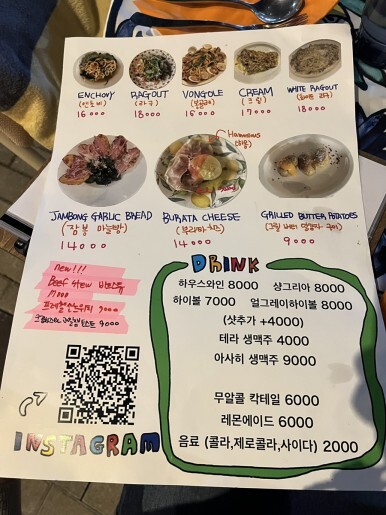 ENCHOVY
(엔초비)
16000
RAGOUT
(라구)
18000
VONGOLE
(봉골레)
16000
CREAM
(크림)
17000
WHITE RAGOUT
(화이트 라구)
18000
Hummus
(허머스)
JAMBONG GARLIC BREAD
(잠봉 마늘빵)
14000
BURATA CHEESE
(부라타 치즈)
14000
GRILLED BUTTER POTATOES
9000
new!!!
Beef stew 비프스튜
9000
DRINK
하우스와인 8000 상그리아 8000
하이볼 7000 얼그레이하이볼 8000
(샷추가 +4000)
테라 생맥주 4000
아사히 생맥주 9000
무알콜 칵테일 6000
레몬에이드 6000
음료 (콜라,제로콜라,사이다) 2000
INSTAGRAM